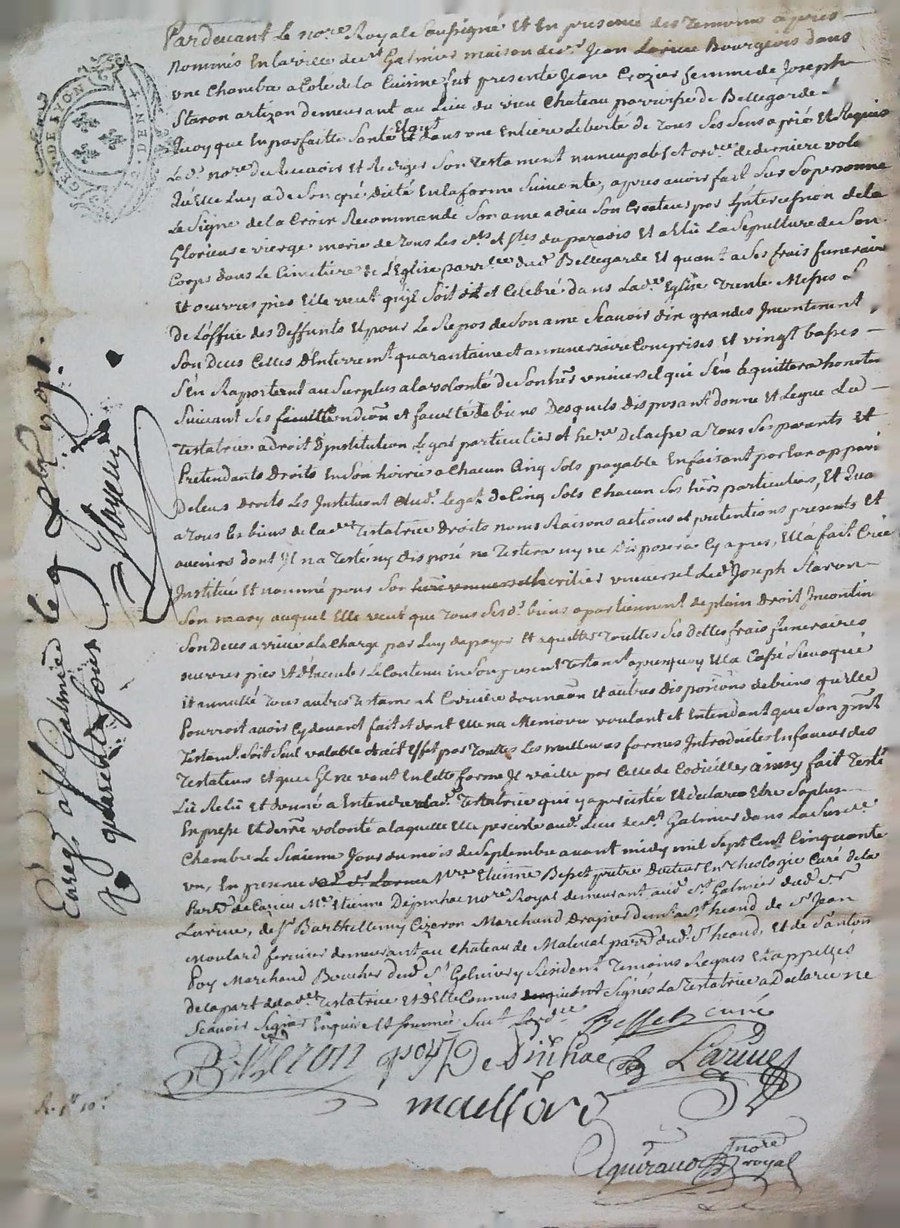 GEN. DE LYON
12 DEN
Pardevant Le nore. Royal Soussigné Et En presence des Temoins apres
nommés En la ville de st. Galmier maison de sr. Jean Larue Bourgeois dans
une Chambre a Coté de la Cuisine fut presente Jeane Crozier femme de Joseph
Staron artizan demeurant au Lieu du vieu Chateau parroisse de Bellegarde
quoy que En parfaitte Santé Et dans une Entiere Liberté de Tous Ses Sens a prié Et Requis
Led. nore. de Recevoir Et Rediger Son Testament nuncupatif et ordre. de derniere volo
qu'Elle Luy a de Son gré dicté En la forme Suivante, apres avoir fait Sur Sa personne
Le Signe de La Croix Recommandé Son ame a dieu Son Createur par L'intercession de la
Glorieuse vierge marie de Tous Les sts. et stes. du paradis Et a Elû La Sepulture de Son
Corps dans Le Cimetiere de L'Eglise parrlle. dud. Bellegarde Et quant a Ses frais funeraire
Et oeuvres pies Elle veut qu'il Soit dit et Celebré dans Lade. Eglise Trente Messes
De L'office des Deffunts Et pour Le Repos de Son ame Scavoir dix grandes Incontinent
Son Deces Celles D'Enterrement quarantaine et anniversaire Comprises Et vingt basses
S'en Raportent au Surplus a la volonté de Son her. universel qui S'en acquittera
Suivant Ses et faculté de biens Desquels disposant donne et Legue Lad.
Testatrice a droit D'institution Legat particulier et here. Delaisse a Tous Ses parents Et
Pretendants Droits En Son hoirie a Chacun Cinq Sols payable En faisant par Eux apparoi
De Leus droits Les Instituent aud. legat de Cinq Sols Chacun Ses hers. particuliers, Et Qua
a Tous Les biens de lade. Testatrice Droits noms Raisons actions et pretentions presents Et
avenirs dont Il na Testé ny disposé ne Testera ny ne Disposera Cy apres, Ella fait Créé
Institué Et nommé pour Son heritier universel Led. Joseph Staron
Son mary auquel Elle veut que Tous Sesd. biens apartiennent de plein droit Incontin
Son Deces arrivé a la Charge par Luy de payer Et aquitter Touttes Ses dettes frais funeraires
oeuvres pies Et d'Executer Le Contenu En Son present Testant. aprequoy Ella Cassé Revoqué
Et annullé Tous autres Testaments Codicille donnaon Et autres dispositions de biens qu'Elle
Pourroit avoir Cy devant fait et dont Elle na Memoire voulant Et Entendant que Son prnt.
Testamt. Soit Seul valable Et ait Effet par Touttes Les meilleures formes Introduites En faveur des
Testateurs Et que Sil ne vaut En Cette forme Il vaille par Celle de Codicilles ainsy fait Testé
Lû Relû Et donné a Entendre a lade. Testatrice qui y a persisté Et declaré Etre Sa plus
Expresse Et derre. volonté a laquelle Elle persiste aud. Lieu de st. Galmier dans La Susde.
Chambre Le Sixieme Jour du mois de Septembre avant midy mil Sept Cent Cinquante
un, En presence de Mre. Etienne Besset pretre Docteur En Theologie Curé de la
Me. Etienne Dejuinhac nore. Royal demeurant aud. st. Galmier dud. sr.
Larue, de sr. Barthellemy Cizeron Marchand drapier a st. heand de sr. Jean
Moulard fermier demeurant au Chateau de Maleval parr. dud. st. heand, Et de sr. antoin
Poy Marchand Boucher dud. st. Galmier y Resident Temoins Requis Et appellés
de la part de lade. Testatrice Et d'Elle Connus Signés La Testatrice a Declaré ne
Scavoir Signer Enquise Et Sommée
Besset curé
B Cizeron poy Dejuinhac Larue
moullard
nore royal
R. 10s.
Enregé. a St Galmier le 9 7bre 1751.
R quarente sous